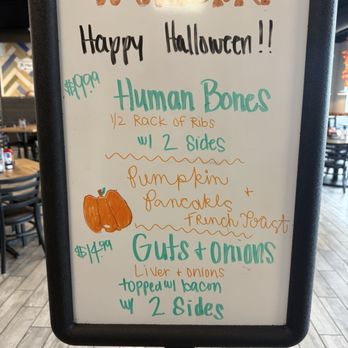 Happy Halloween!!
Human Bones
1/2 Rack of Ribs
w/ 2 Sides
Pumpkin
Pancakes +
French Toast
$14.99
Guts + Onions
Liver + onions
topped w/ bacon
w/ 2 Sides